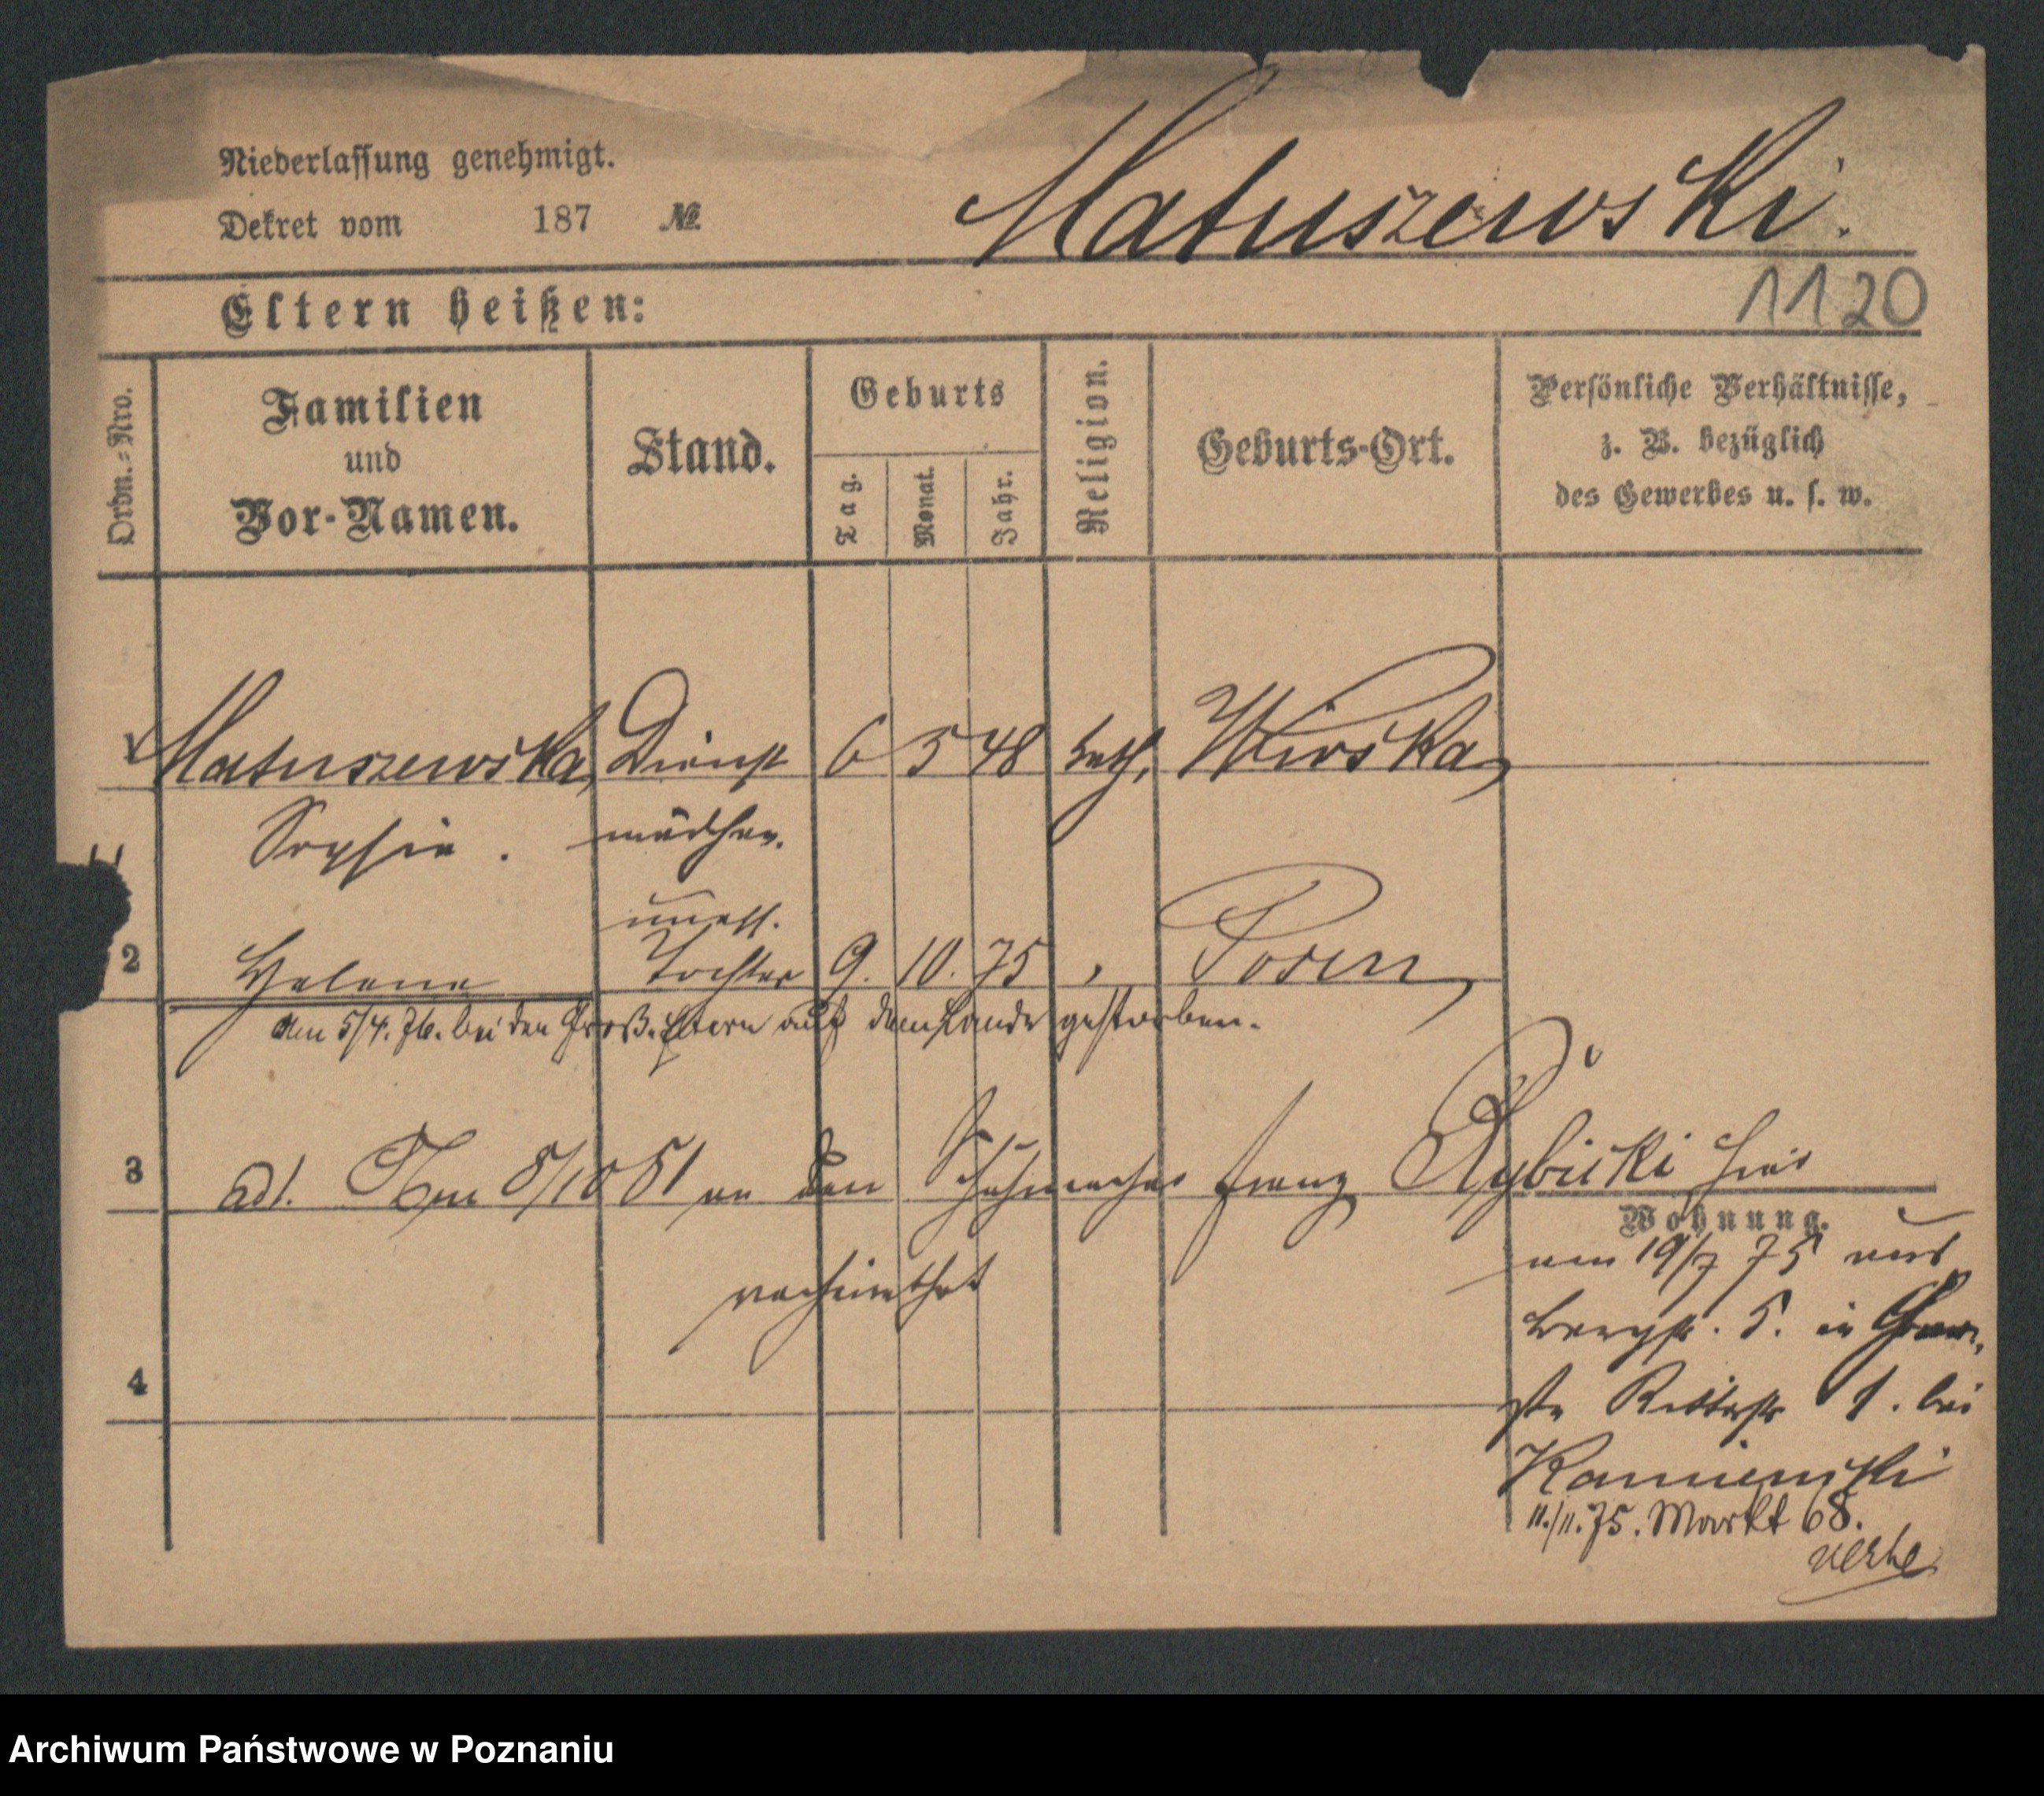 Niederlassung genehmigt.
Dekret vom 187 №
Matuszewski.
1120
Eltern heißen:
Ordn.-Nro.
Familien
und
Vor-Namen.
Stand.
Geburts
Tag.
Monat.
Jahr.
Religion.
Geburts-Ort.
Persönliche Verhältnisse,
z. B. bezüglich
des Gewerbes u. s. w.
1 Matuszewska, Dienst 6 5 48 kath.
Sophie. mädchen.
unehl.
2 Helene Tochter 9. 10. 75 Posen
am 5/4. 76. bei den Groß-Eltern auf dem Lande gestorben.
3 ad 1. 8/10 81 an den Schuhmacher Franz Rybicki hier
verheirathet
Wohnung.
am 19/7 75 aus
Bergstr. 5. in
Ritterstr 1. bei
Kamienski
11./11. 75. Markt 68.
4
Archiwum Państwowe w Poznaniu